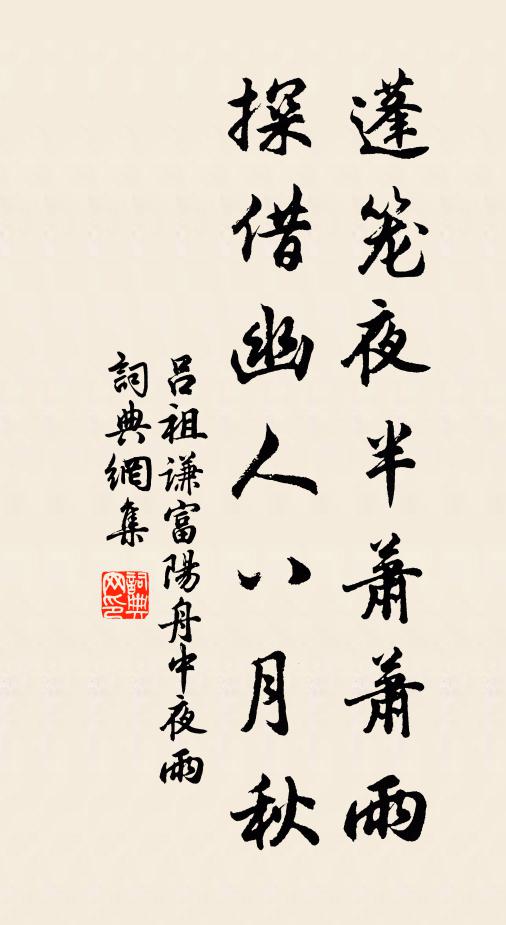 蓬笼夜半萧萧雨
探借幽人八月秋
吕祖谦富陽舟中夜雨
詞典網集
詞典网印